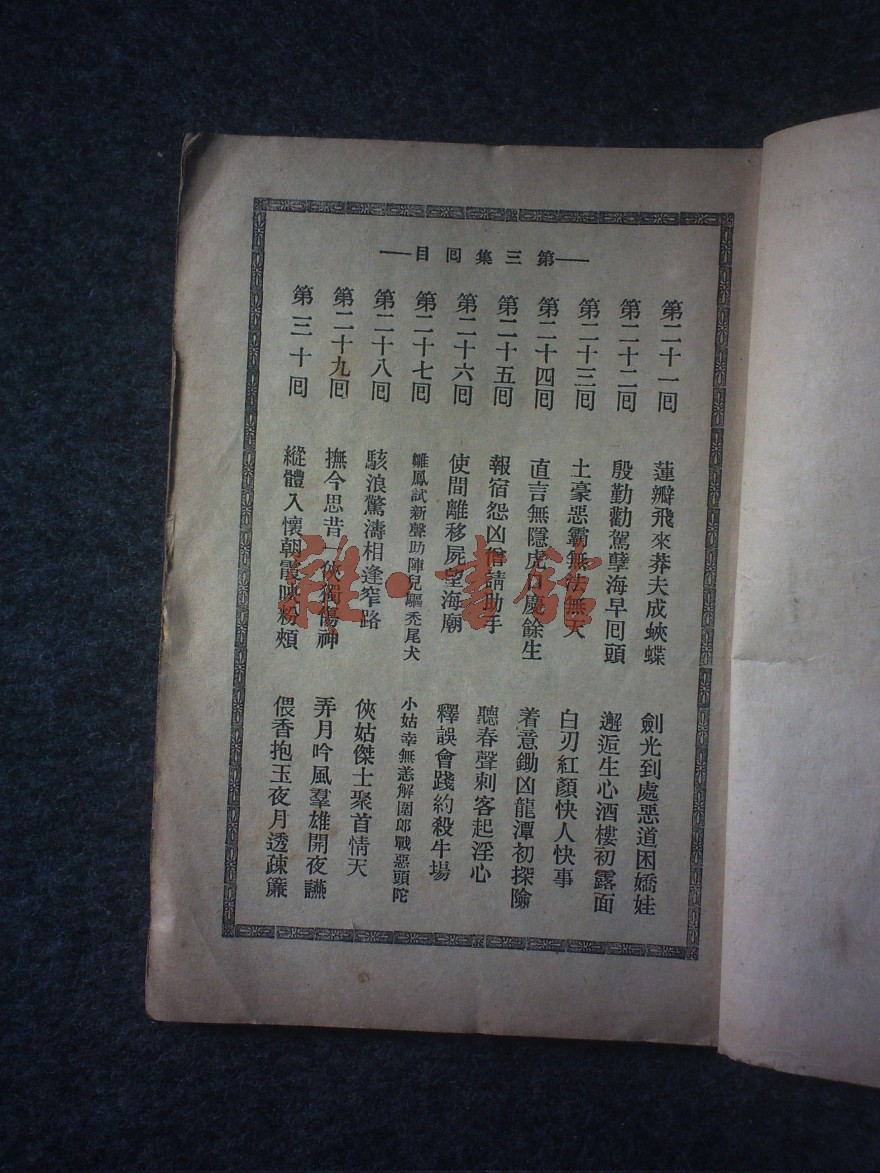 第三集囘目
第二十一囘 蓮瓣飛來莽夫成蛺蝶 劍光到處惡道困嬌娃
第二十二囘 殷勤勸駕孽海早囘頭 邂逅生心酒樓初露面
第二十三囘 土豪惡霸無法無天 白刃紅顏快人快事
第二十四囘 直言無隱虎口慶餘生 着意鋤凶龍潭初探險
第二十五囘 報宿怨凶僧請助手 聽春聲刺客起淫心
第二十六囘 使間離移屍望海廟 釋誤會踐約殺牛場
第二十七囘 雛鳳試新聲助陣兒驅禿尾犬 小姑幸無恙解圍郎戰惡頭陀
第二十八囘 駭浪驚濤相逢窄路 俠姑傑士聚首情天
第二十九囘 撫今思昔一俠獨傷神 弄月吟風羣雄開夜讌
第三十囘 縱體入懷朝霞映粉頰 偎香抱玉夜月透疎簾
雜·書館